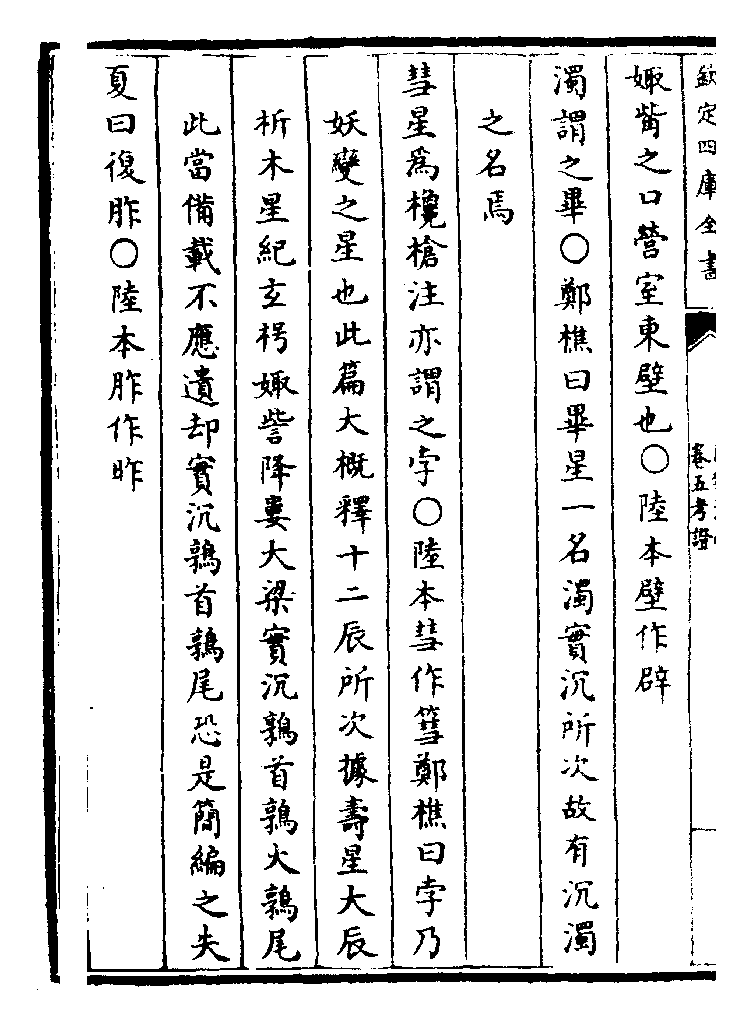 欽定四庫全書
卷五考證
娵觜之口營室東壁也○陸本壁作辟
濁謂之畢○鄭樵曰畢星一名濁實沉所次故有沉濁
之名焉
彗星為欃槍注亦謂之孛○陸本彗作篲鄭樵曰孛乃
妖變之星也此篇大概釋十二辰所次據壽星大辰
析木星紀玄枵娵訾降婁大梁實沉鶉首鶉火鶉尾
此當備載不應遺却實沉鶉首鶉尾恐是簡編之失
夏曰復胙○陸本胙作昨